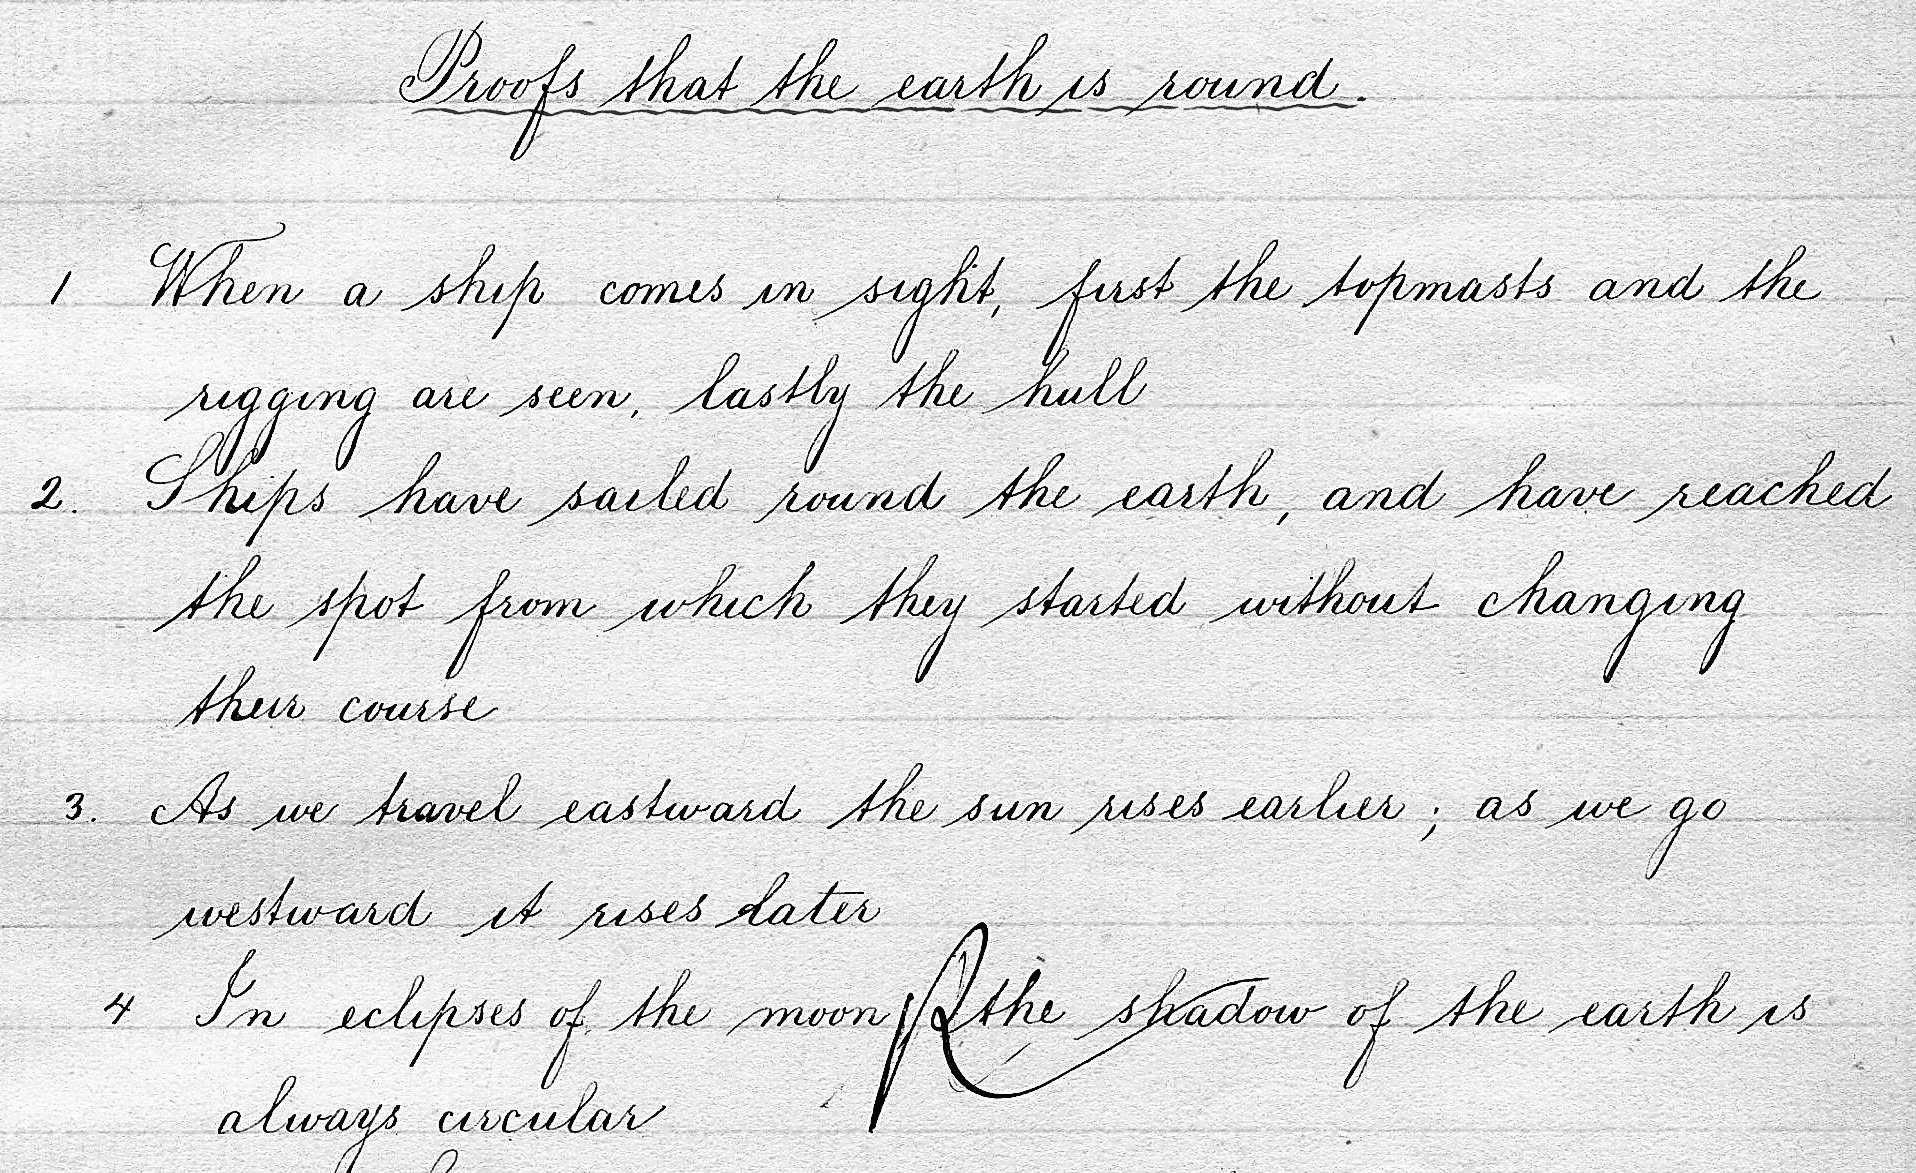 Proofs that the earth is round.
1 When a ship comes in sight, first the topmasts and the
rigging are seen, lastly the hull
2. Ships have sailed round the earth, and have reached
the spot from which they started without changing
their course
3. As we travel eastward the sun rises earlier; as we go
westward it rises later
4 In eclipses of the moon R the shadow of the earth is
always circular